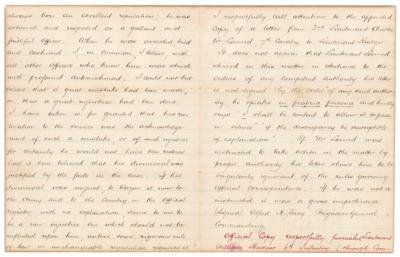 always born an excellent reputation; he was
esteemed and respected as a gallant and
faithful officer. When he was arrested tried
and cashiered I, in common, I believe, with
all other officers who knew him was struck
with profound astonishment. I could not but
believe that a great mistake had been made,
or that a great injustice had been done.
I have taken it for granted that his res-
toration to the service was the acknowledge-
ment of such a mistake, or of such injustice
for certainly he would not have been restored
had it been believed that his dismissal was
justified by the facts in the case. If his
dismissal was unjust to blazon it now to
the Army and to the Country in the Official
register, with no explanation seems to me to
be a new injustice and which should not be
inflicted upon him unless some rigorous rule
or law or unchangeable regulation requires it."
I respectfully call attention to the appended
Copy of a letter from 2nd Lieutenant Charles
W. Larned, 7th Cavalry to Lieutenant Kidger.
It does not appear that Lieutenant Larned
stirred in this matter in obedience to the
orders of any Competent authority his letter
is not signed "by the order" of any such author-
ity, he speaks in propria persona and kindly
says "I shall be content to allow it to pass
in silence" if the discrepancy be susceptible
of explanation". If Mr Larned was
instructed to take action in the matter by
proper authority his letter shows him to be
singularly ignorant of the rules governing
official correspondence. If he was not so
instructed it was a gross impertinence
(signed) Alfred H Terry Brigadier General
Commanding
Official Copy respectfully furnished Lieutenant
6th Infantry (through Com-